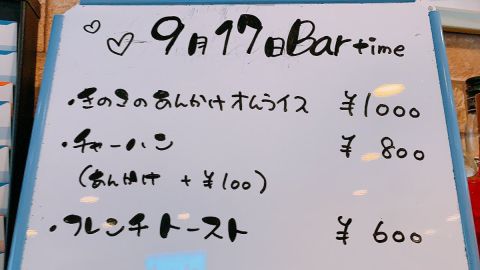 ♡♡9月17日Bar time
・きのこのあんかけオムライス ¥1000
・チャーハン ¥ 800
(あんかけ +¥100)
・フレンチトースト ¥ 600